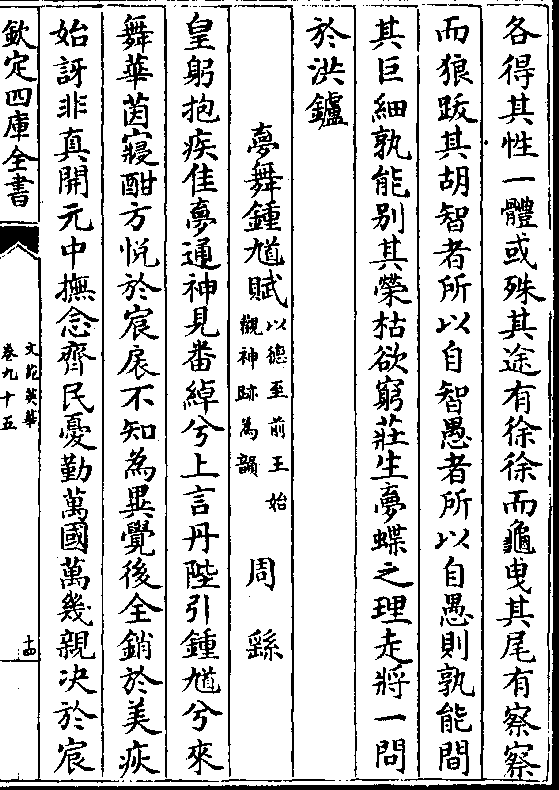 各得其性一體或殊其途有徐徐而龜曳其尾有察察
而狼跋其胡智者所以自智愚者所以自愚則孰能間
其巨細孰能别其榮枯欲窮莊生夢蝶之理走將一問
於洪鑪
夢舞鍾馗賦以德至前王始觀神跡為韻 周繇
皇躬抱疾佳夢通神見番綽兮上言丹陛引鍾馗兮來
舞華茵寢酣方悅於宸扆不知為異覺後全銷於美疢
始訝非真開元中撫念齊民憂勤萬國萬幾親决於宸
欽定四庫全書
文苑英華
卷九十五
十四